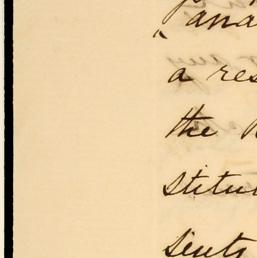 "ana
a res
the
stitu
sents